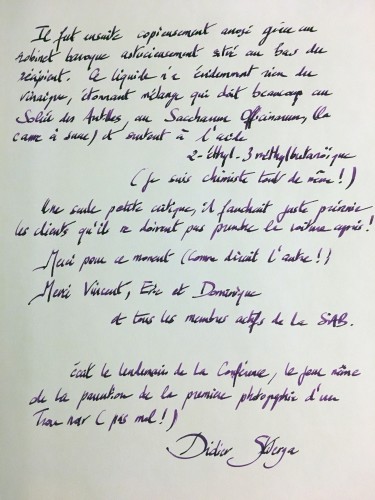 Il fut ensuite copieusement arrosé grâce au
robinet baroque astucieusement situé au bas du
récipient. Ce liquide n'a évidemment rien du
vinaigre, étonnant mélange qui doit beaucoup au
Soleil des Antilles, au Saccharum Officinarum, (la
canne à sucre) et surtout à l'acide
2-éthyl-3 méthylbutanoïque
(je suis chimiste tout de même !)
Une seule petite critique, il faudrait juste prévenir
les clients qu'ils ne doivent pas prendre la voiture après !
Merci pour ce moment (comme dirait l'autre !)
Merci Vincent, Eric et Dominique
et tous les membres actifs de la SAB.
écrit le lendemain de la Conférence, le jour même
de la parution de la première photographie d'un
Trou noir (pas mal !)
Didier